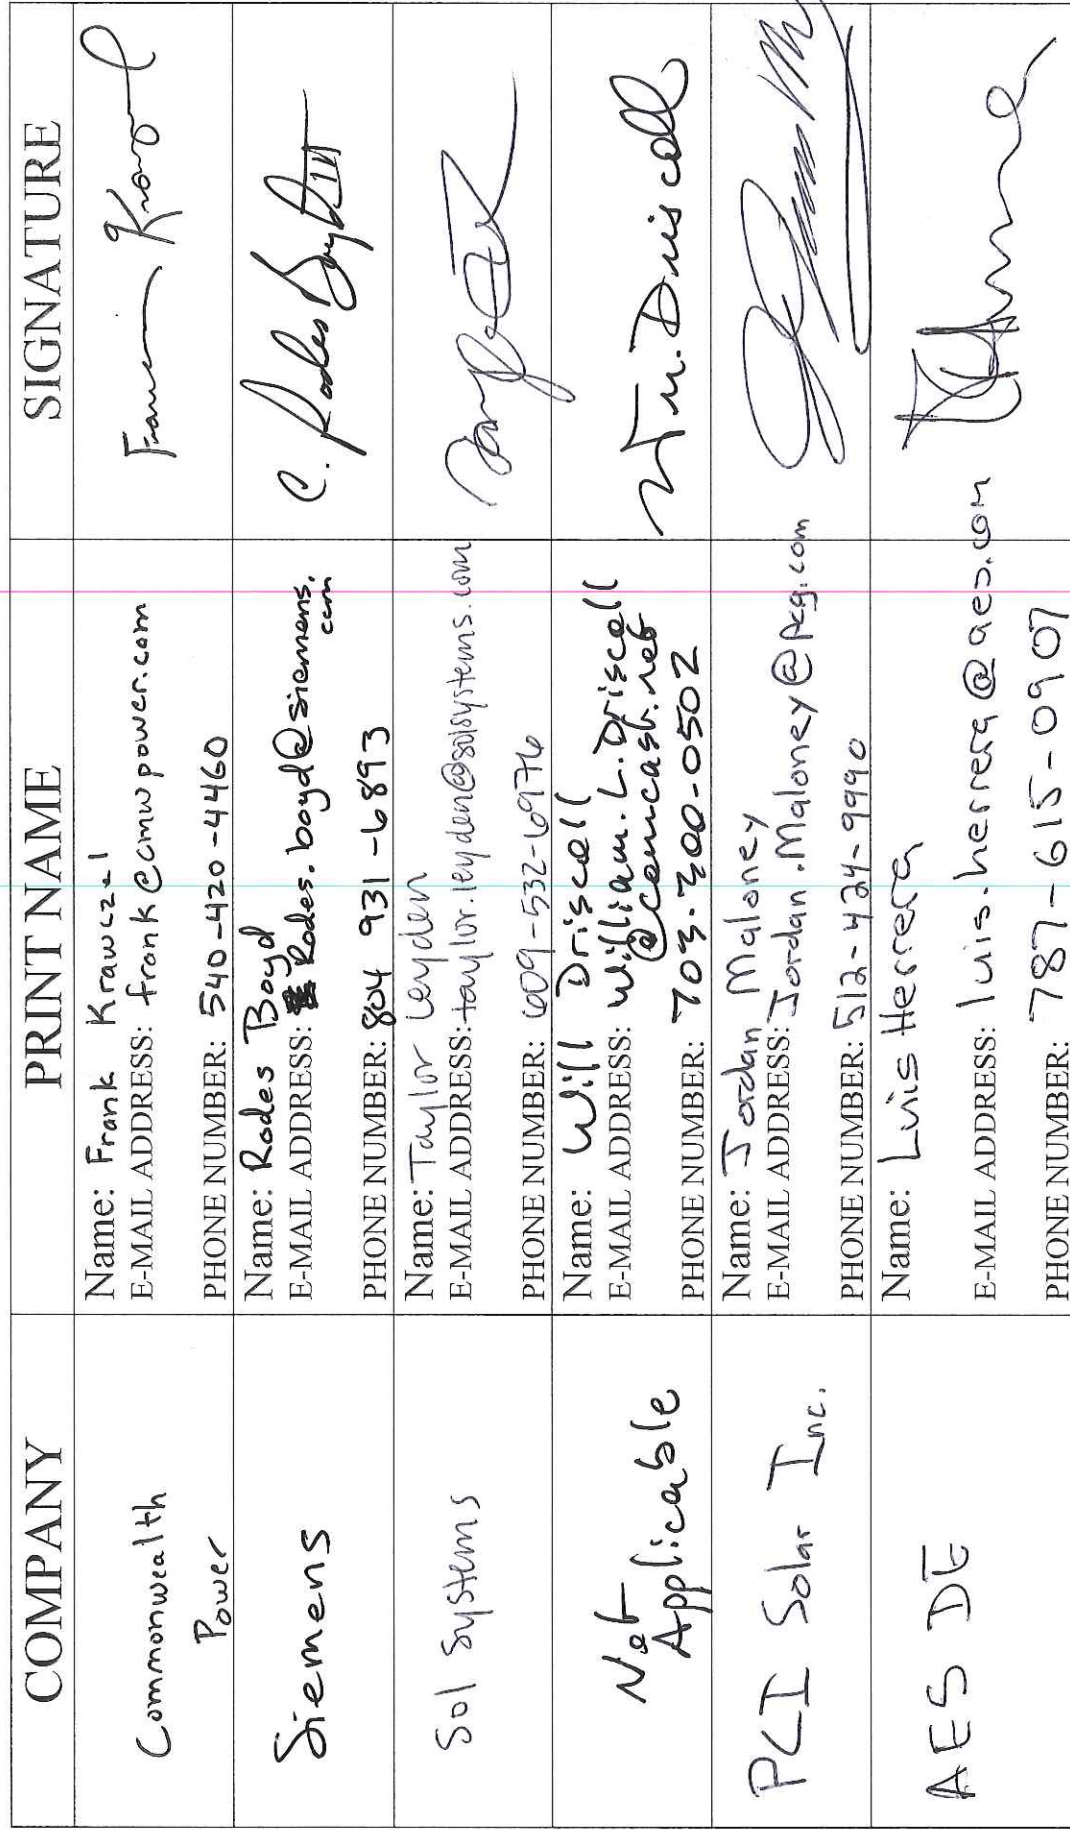 COMPANY PRINT NAME SIGNATURE
Commonwealth
Power
Name: Frank Krawczel
E-MAIL ADDRESS: frank@cmwpower.com
PHONE NUMBER: 540-420-4460
Siemens
Name: Rodes Boyd
E-MAIL ADDRESS: Rodes.boyd@siemens.
com
PHONE NUMBER: 804 931-6893
C. Rodes Boyd III
Sol Systems
Name: Taylor Leyden
E-MAIL ADDRESS: taylor.leyden@solsystems.com
PHONE NUMBER: 609-532-6976
Not
Applicable
Name: Will Driscoll
E-MAIL ADDRESS: William.L.Driscoll
@comcast.net
PHONE NUMBER: 703-300-0502
Wm. Driscoll
PCI Solar Inc.
Name: Jordan Maloney
E-MAIL ADDRESS: Jordan.Maloney@pcg.com
PHONE NUMBER: 512-424-9990
AES DE
Name: Luis Herrera
E-MAIL ADDRESS: luis.herrera@aes.com
PHONE NUMBER: 787-615-0907